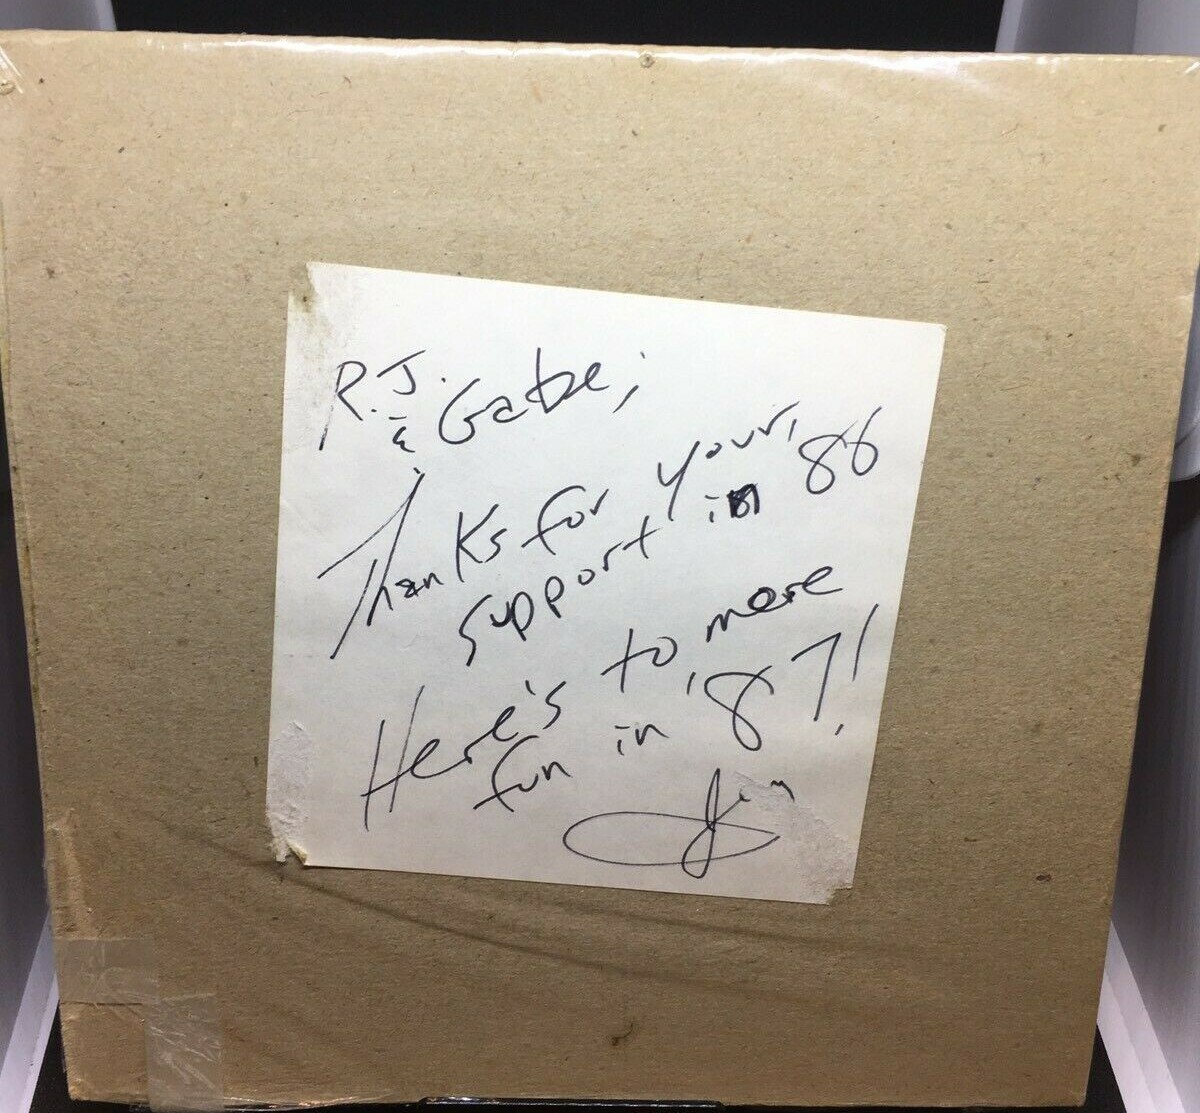 R.J. & Gabe;
Thanks for your,
support in 86
Here's to more
fun in '87!
Jim